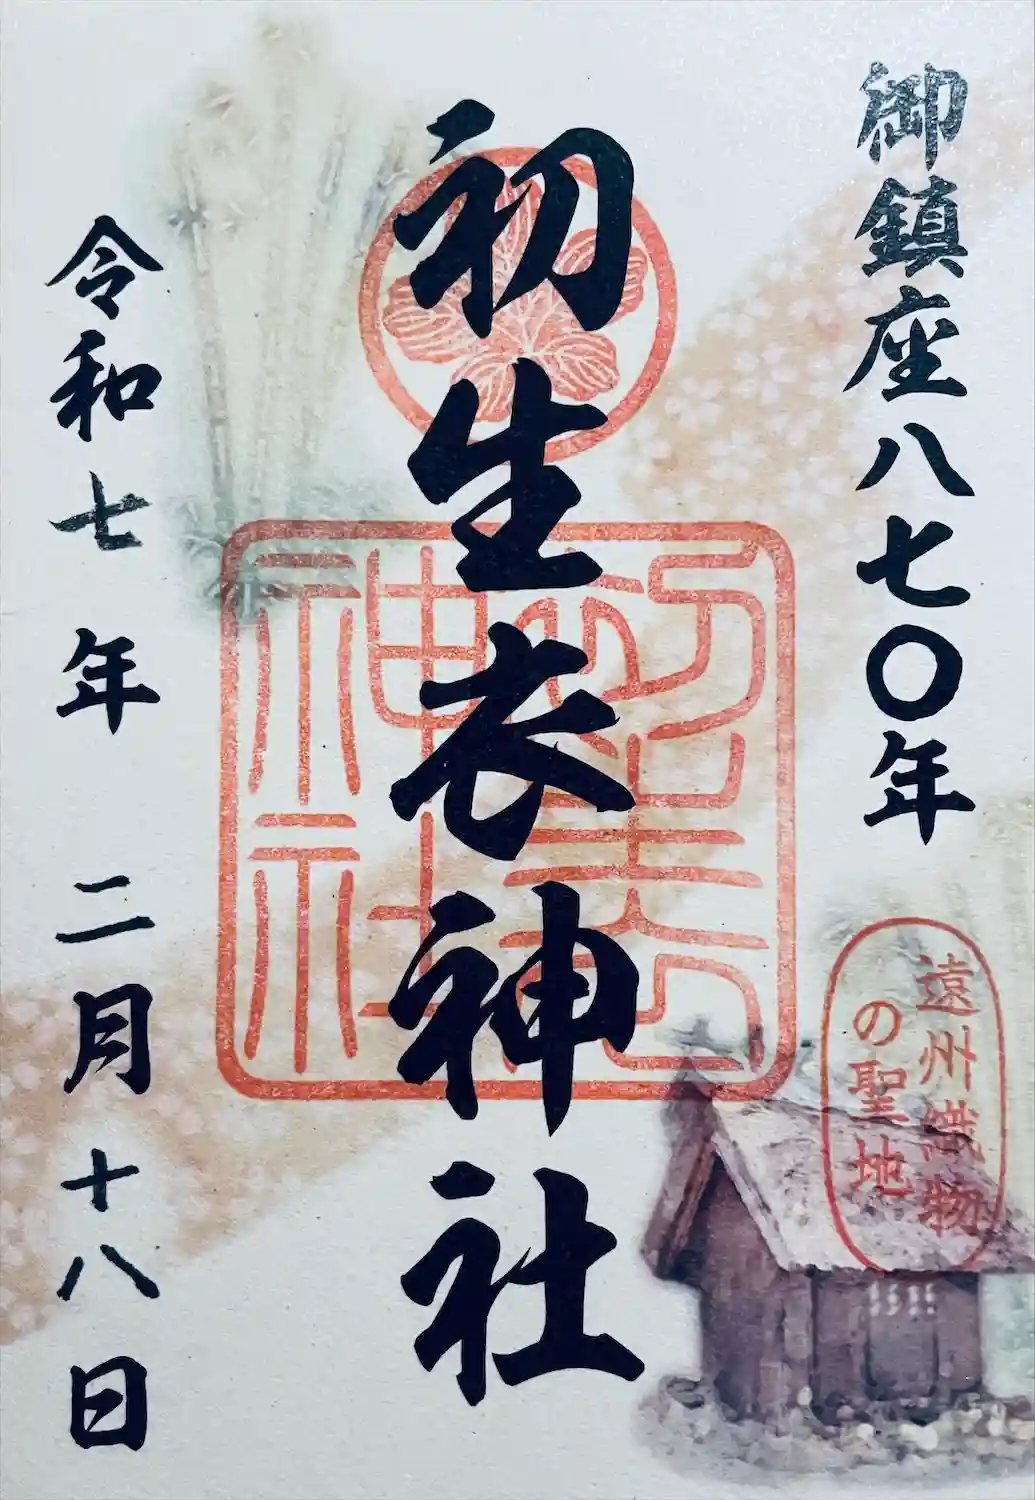 御鎮座八七〇年
初生衣神社
初生衣
神社
遠州織物
の聖地
令和七年二月十八日